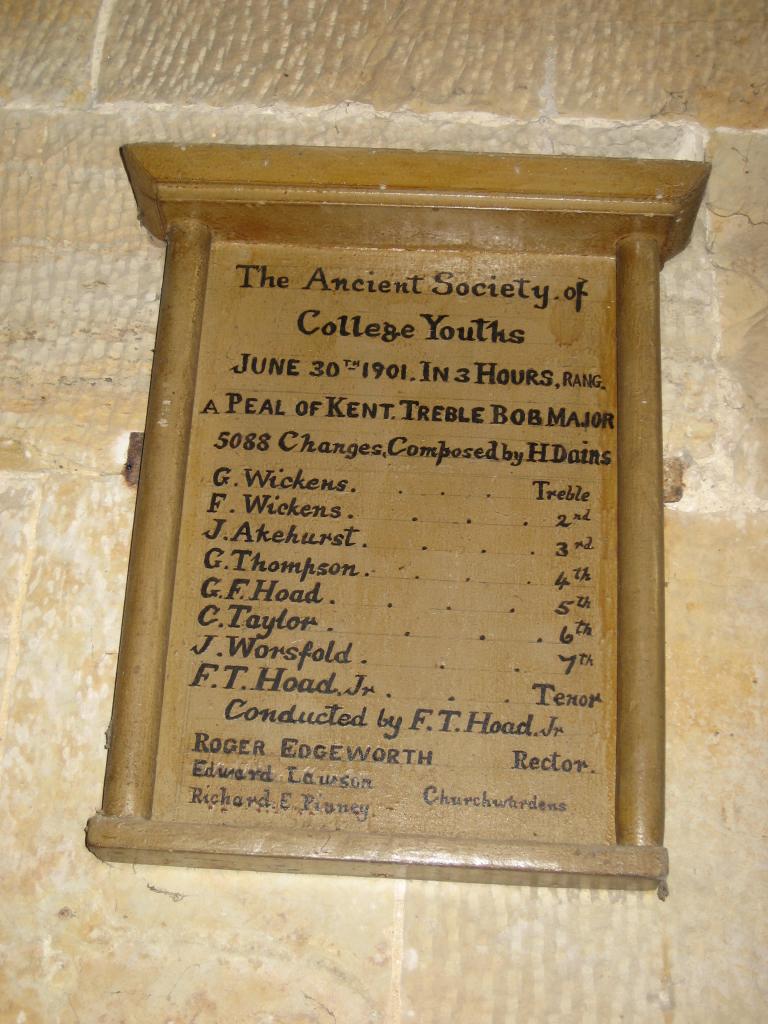 The Ancient Society of
College Youths
JUNE 30TH 1901. IN 3 HOURS, RANG.
A PEAL OF KENT. TREBLE BOB MAJOR
5088 Changes, Composed by H Dains
G. Wickens. . . . Treble
F. Wickens. . . . 2nd
J. Akehurst. . . . 3rd
G. Thompson. . . . 4th
G. F. Hoad. . . . 5th
C. Taylor. . . . 6th
J. Worsfold. . . 7th
F. T. Hoad. Jr. . . Tenor
Conducted by F. T. Hoad. Jr
ROGER EDGEWORTH Rector.
Edward Lawson
Richard. E. Pinney. Churchwardens